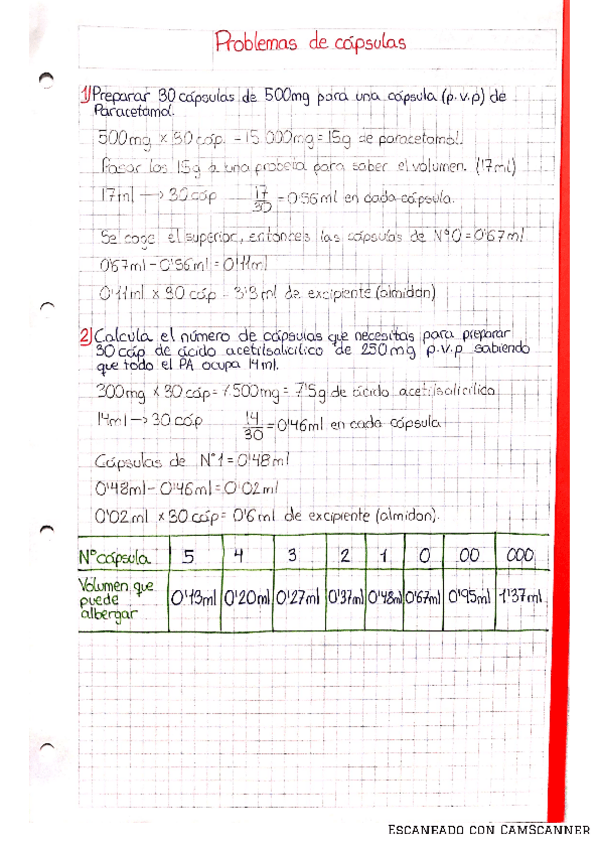 Problemas de cápsulas
1) Preparar 30 cápsulas de 500mg para una cápsula (p.v.p) de
Paracetamol.
500mg x 30 cáp. = 15.000mg = 15g de paracetamol.
Pasar los 15g a una probeta para saber el volumen. (17ml)
17ml → 30 cáp 17/30 = 0'56ml en cada cápsula.
Se coge el superior, entonces las cápsulas de Nº0 = 0'67ml
0'67ml - 0'56ml = 0'11ml
0'11ml x 30 cáp = 3'3ml de excipiente (almidón)
2) Calcula el número de cápsulas que necesitas para preparar
30 cáp de ácido acetilsalicílico de 250mg p.v.p sabiendo
que todo el PA ocupa 14ml.
300mg x 30 cáp = 7500mg = 7'5g de ácido acetilsalicílico
14ml → 30 cáp 14/30 = 0'46ml en cada cápsula
Cápsulas de Nº1 = 0'48ml
0'48ml - 0'46ml = 0'02ml
0'02ml x 30 cáp = 0'6ml de excipiente (almidón).
Nº cápsula 5 4 3 2 1 0 00 000
Volumen que puede albergar 0'13ml 0'20ml 0'27ml 0'37ml 0'48ml 0'67ml 0'95ml 1'37ml
ESCANEADO CON CAMSCANNER